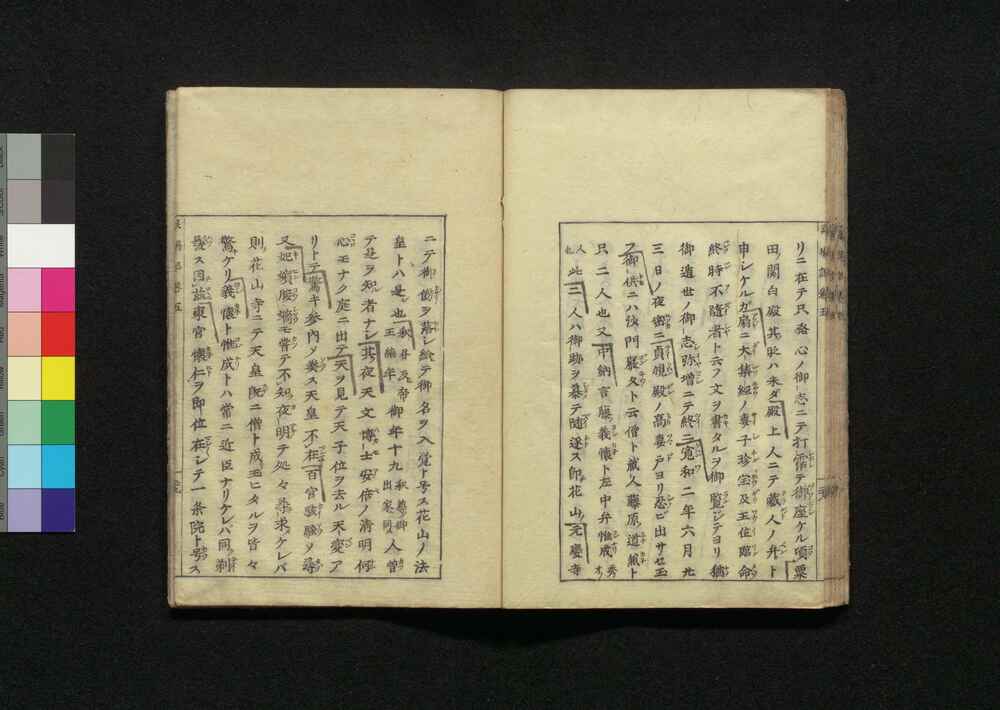 リニ在テ只 心ノ御志ニテ打 御座ケル頃粟
田ノ関白殿其 ハ未ダ殿上人ニテ蔵人ノ弁ト
申シケルガ扇ニ大集経ノ妻子珍宝及王位臨命
終時不随者ト云フ文ヲ書タルヲ御覧 テヨリ猶
御遁世ノ御志弥増ニテ終ニ寛和二年六月廿
三日ノ夜密ニ貞観殿ノ高妻戸ヨリ忍ビ出サセ玉
フ御供ニハ沙門厳久ト云僧ト蔵人藤原道兼ト
只二人也又中納言藤義懐ト左中弁惟成
人也此三人ハ御跡ヲ慕テ随逐ス即花山元慶寺
ニテ御 ヲ落シ給テ御名ヲ入覚ト号ス花山ノ法
皇トハ是也 御年十九 人曽
テ是ヲ知者ナシ其夜天文博士安倍ノ清明何
心モナク庭ニ出テ天ヲ見テ天子位ヲ去ル天変ア
リトテ驚キ参内メ奏ス天皇不在百官 メ尋
又 常テ不知夜明テ処々尋求ケレバ
則花山寺ニテ天皇既ニ僧ト成玉ヒタルヲ皆々
驚ケリ義懐ト惟成トハ常ニ近臣ナリケレバ同剃
髪ス因茲東宮懐仁ヲ即位在シテ一条院ト号ス